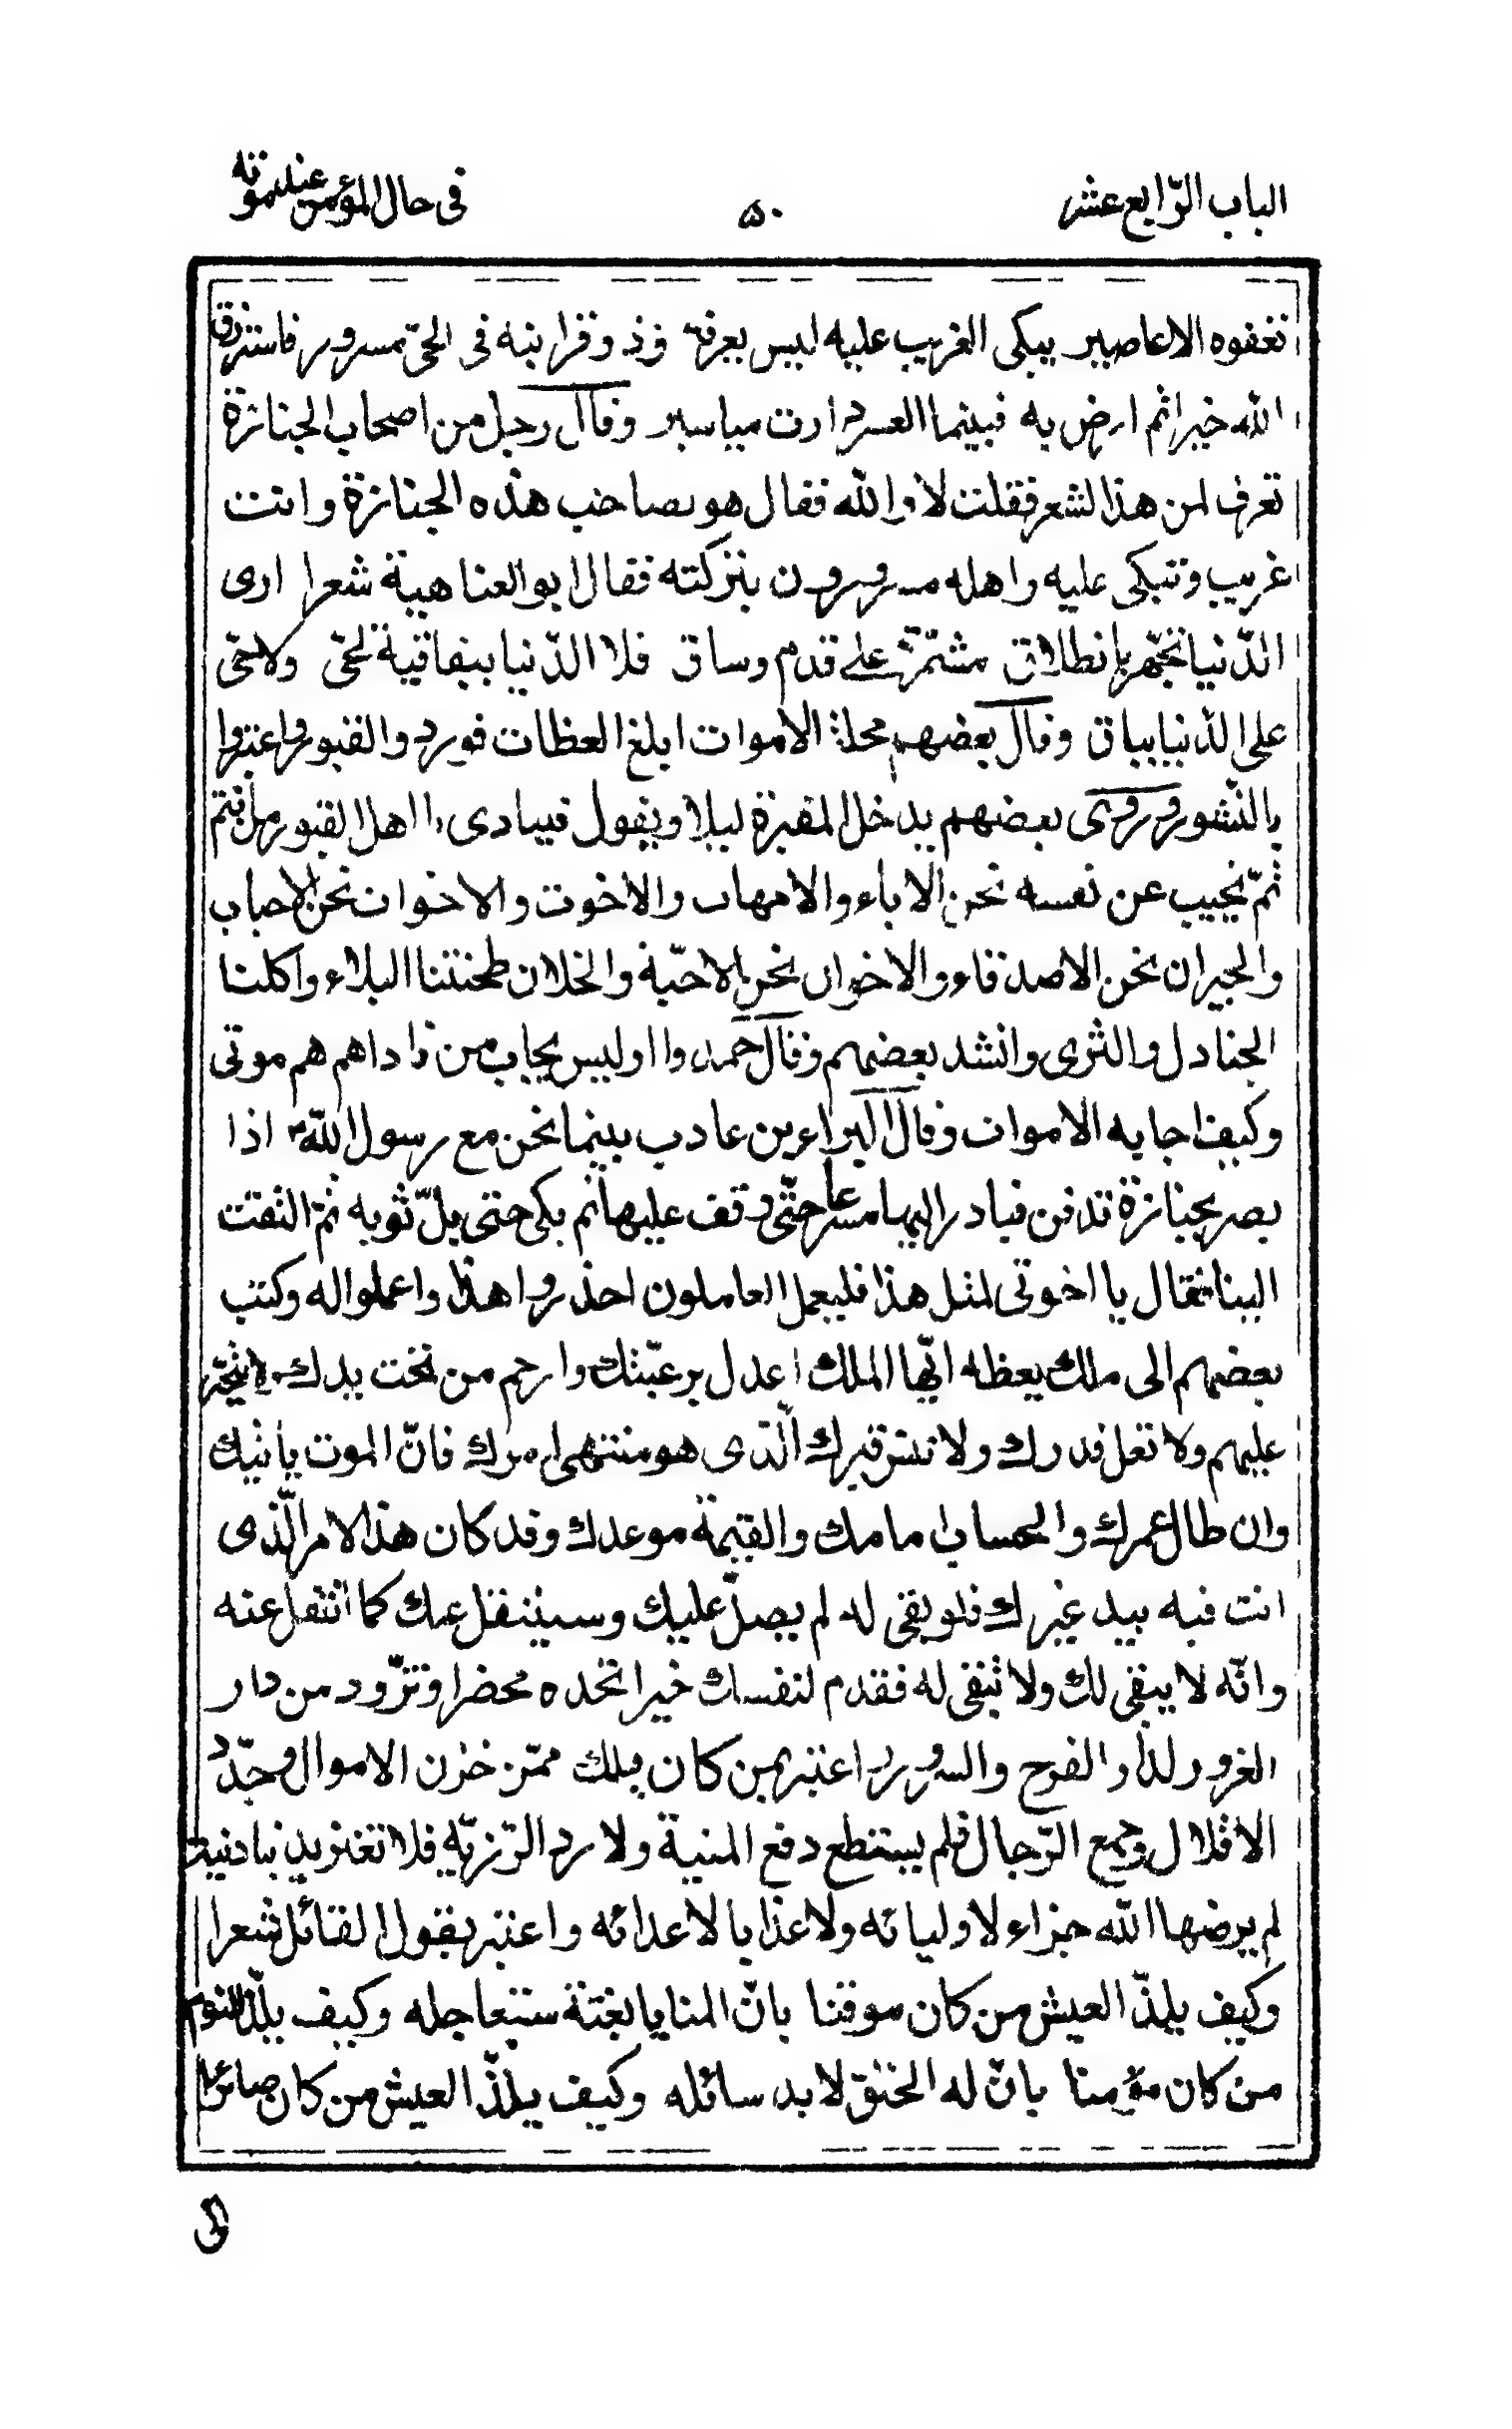 الباب الرّابع عشر
۵۰
فى حال المؤمن عند موته
تعفوه الاعاصير يبكى الغريب عليه ليس يعرفه وذو قرابته فى الحىّ مسرور فاسترزق
الله خيرا ثم ارض به فبينما العسر دارت مياسير وقال رجل من اصحاب الجنازة
تعرف لمن هذا الشعر فقلت لا والله فقال هو لصاحب هذه الجنازة وانت
غريب وتبكى عليه واهله مسرورون بتركته فقال ابو العتاهية شعرا ارى
الدّنيا تجهّز بانطلاق مشمّرة على قدم وساق فلا الدّنيا بباقية لحىّ ولا حىّ
على الدّنيا بباق وقال بعضهم محلة الاموات ابلغ العظات فورد والقبور واعتبروا
بالنّشور وروى بعضهم يدخل المقبرة ليلا ويقول فينادى يا اهل القبور من انتم
ثمّ يجيب عن نفسه نحن الاباء والامهات والاخوت والاخوات نحن الاحباب
والجيران نحن الاصدقاء والاخوان نحن الاحبّة والخلان طحنتنا البلاء واكلنا
الجنادل والثرى وانشد بعضهم وقال خمدوا وليس يجاب من ناداهم هم موتى
وكيف اجابه الاموات وقال البراء بن عاذب بينما نحن مع رسول الله ص اذا
بصر بجنازة تدفن فبادر اليها مسرعا حتّى وقف عليها ثم بكى حتى بلّ ثوبه ثمّ التفت
الينا فقال يا اخوتى لمثل هذا فليعمل العاملون احذروا هذا واعملوا له وكتب
بعضهم الى ملك يعظه ايّها الملك اعدل برعيّتك وارحم من تحت يدك ولا تتجبّر
عليهم ولا تعل قدرك ولا تنس قبرك الّذى هو منتهى امرك فانّ الموت يأتيك
وان طال عمرك والحساب امامك والقيمة موعدك وقد كان هذا الامر الّذى
انت فيه بيد غيرك فلو بقى له لم يصل عليك وسينتقل عنك كما انتقل عنه
وانّه لا يبقى لك ولا تبقى له فقدم لنفسك خيرا تجده محضرا وتزّود من دار
الغرور لدار الفرح والسرور واعتبر بمن كان قبلك ممّن خزن الاموال وجدّد
الاقلال وجمع الرّجال فلم يستطع دفع المنية ولا رد الرّزيّه فلا تغتر بدنيا دنية
لم يرضها الله جزاء لاوليائه ولا عذابا لاعدائه واعتبر بقول القائل شعرا
وكيف يلذّ العيش من كان موقنا بانّ المنايا بغتة ستعاجله وكيف يلذّ النوم
من كان مؤمنا بانّ له الخلق لا بد سائله وكيف يلذّ العيش من كان صائرا
الى